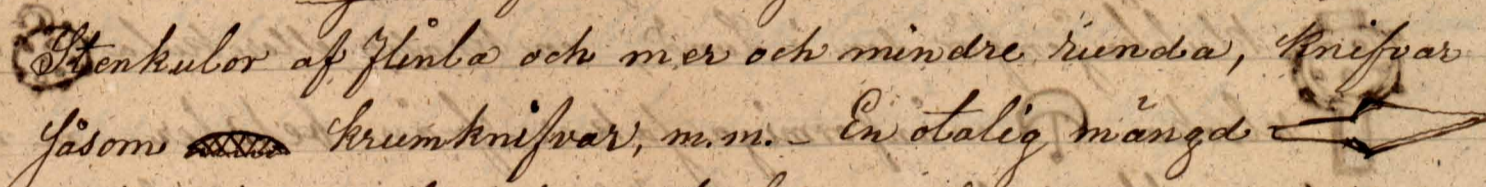 Stenkulor af flinta och mer och mindre runda, knifvar
såsom krumknifvar, m.m. – En otalig mängd